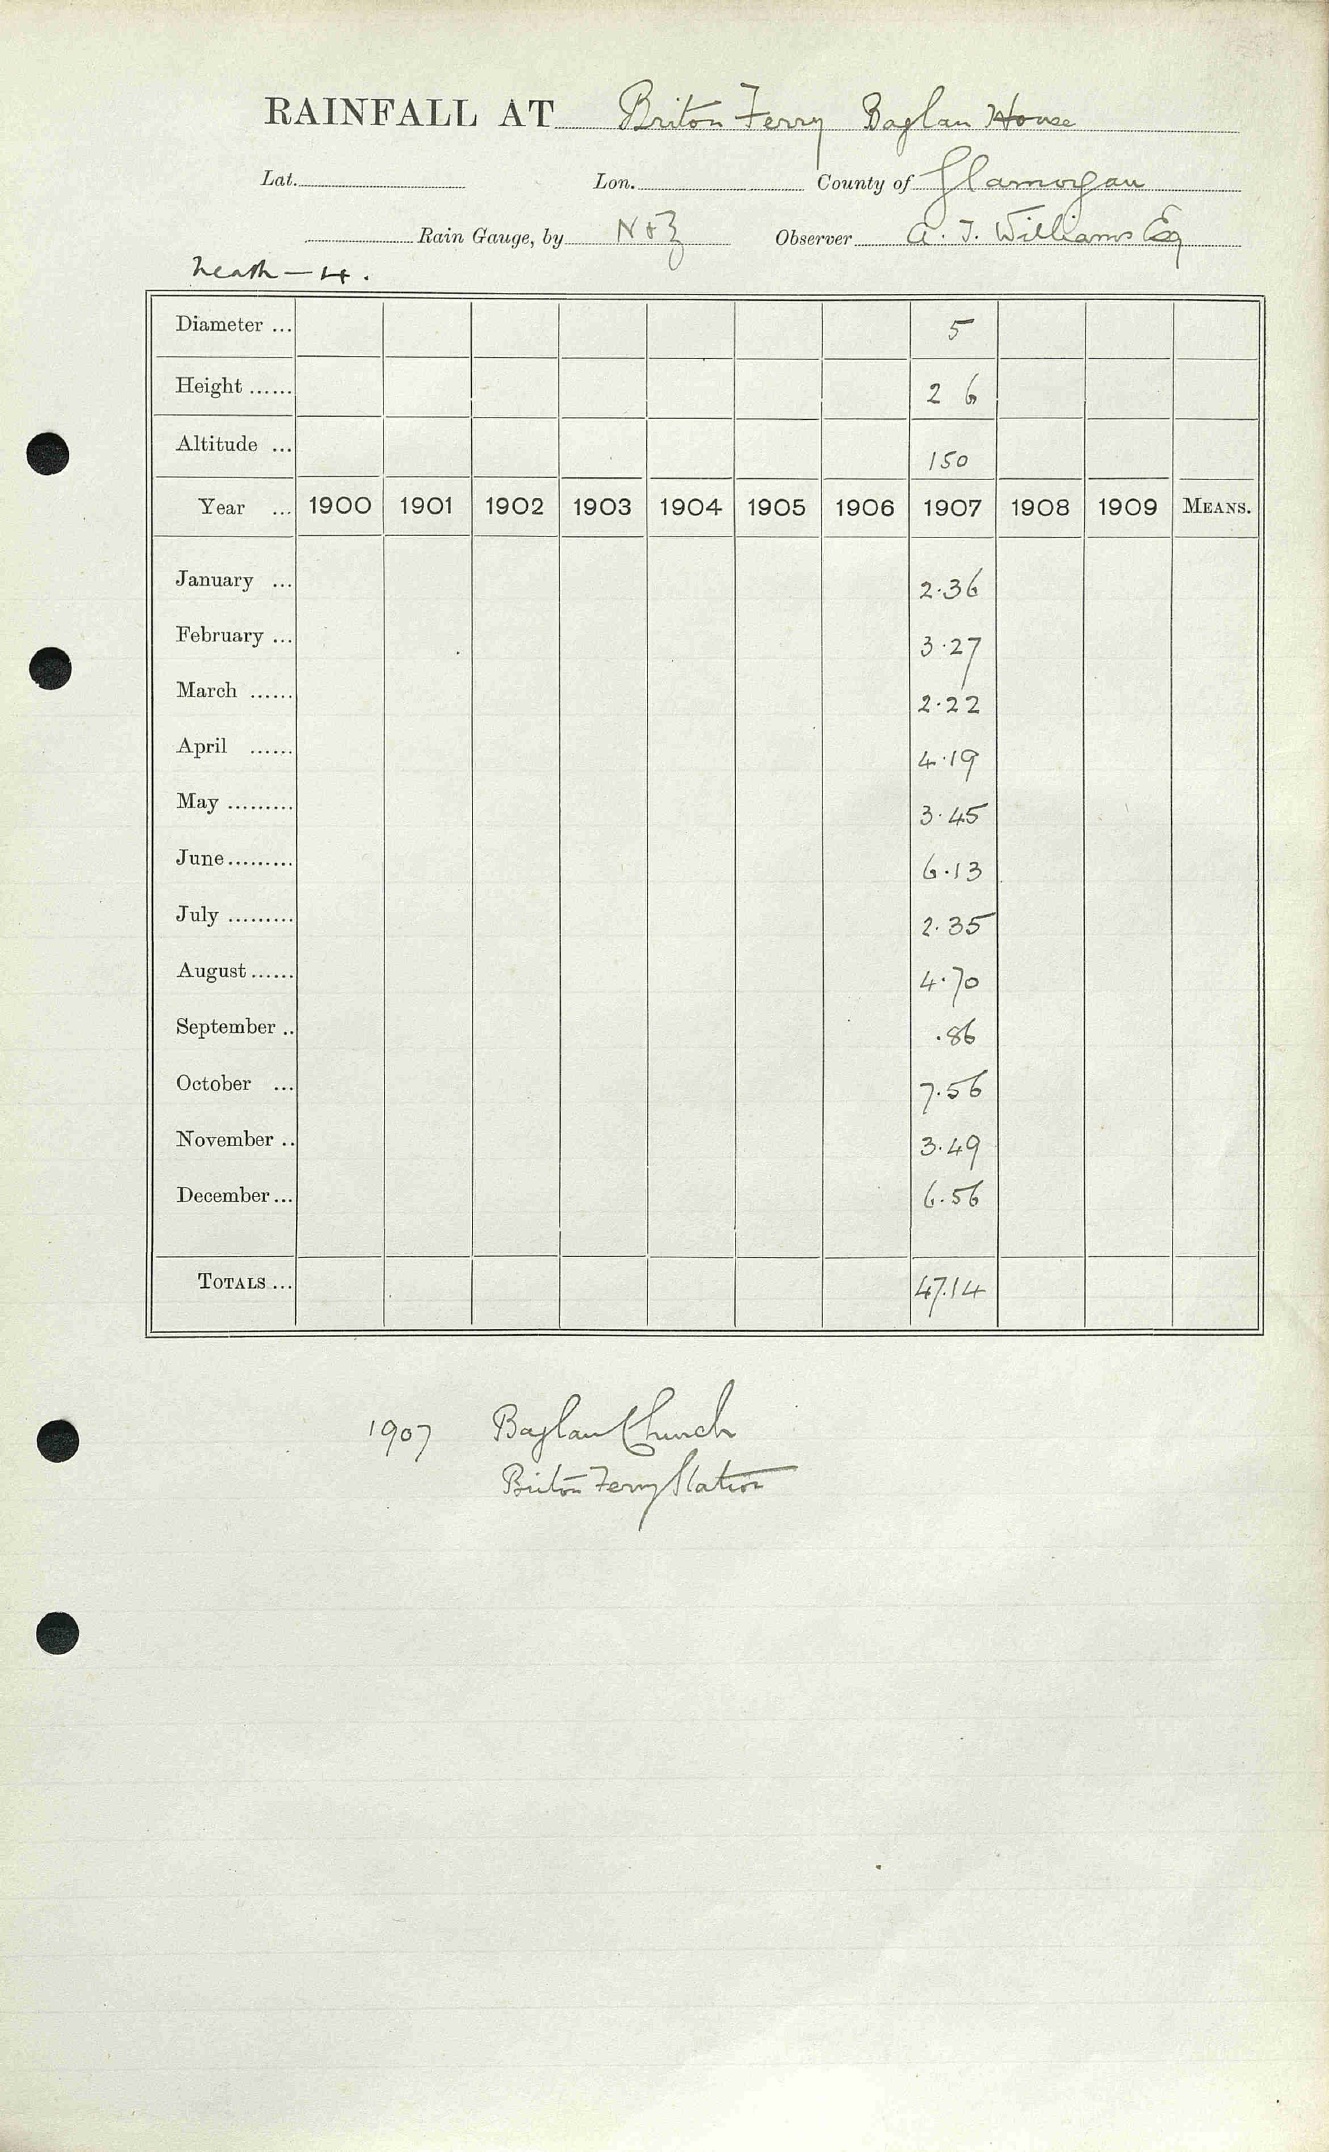 RAINFALL AT Briton Ferry Baglan House
Lat. Lon. County of Glamorgan
Rain Gauge, by N & Z Observer A. J. Williams Esq
Neath — 4.
Diameter ... 5
Height ...... 2 6
Altitude ... 150
Year ... 1900 1901 1902 1903 1904 1905 1906 1907 1908 1909 MEANS.
January ... 2.36
February ... 3.27
March ...... 2.22
April ...... 4.19
May ......... 3.45
June ......... 6.13
July ......... 2.35
August ...... 4.70
September .. .86
October ... 7.56
November .. 3.49
December ... 6.56
TOTALS ... 47.14
1907 Baglan Church
Briton Ferry Station